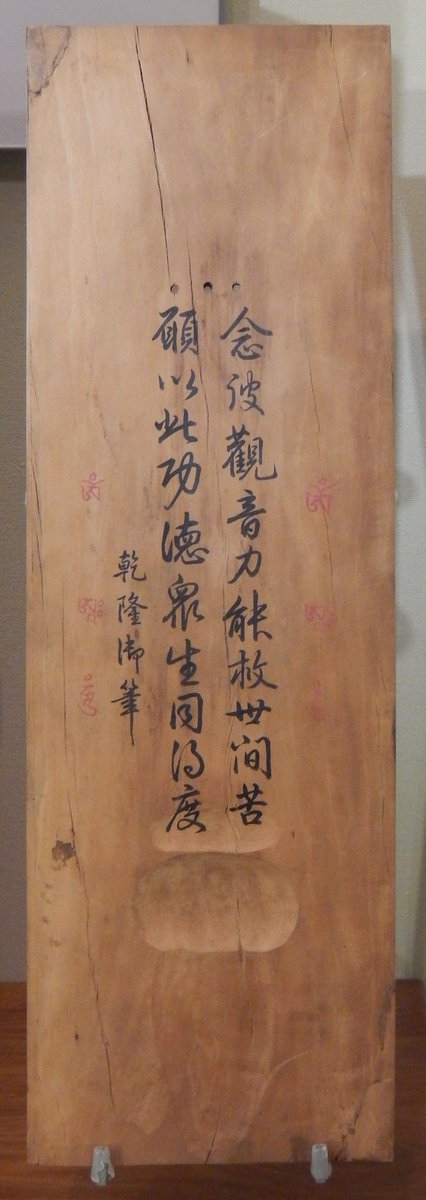 念彼觀音力能救世間苦
願以此功德衆生同得度
乾隆御筆